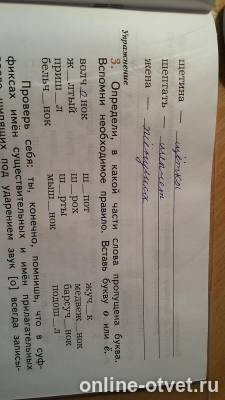 щетина —
шептать — шёпот
жена — жёнушка
Упражнение
3. Определи, в какой части слова пропущена буква.
Вспомни необходимое правило. Вставь букву о или ё.
волч о нок ш__пот жуч__к
ж__лтый ш__рох медвеж__нок
приш__л ш__рты барсуч__нок
бельч__нок мыш__нок подош__л
Проверь себя: ты, конечно, помнишь, что в суф-
фиксах имён существительных и имён прилагательных
после шипящих под ударением звук [о] всегда записы-
online-otvet.ru